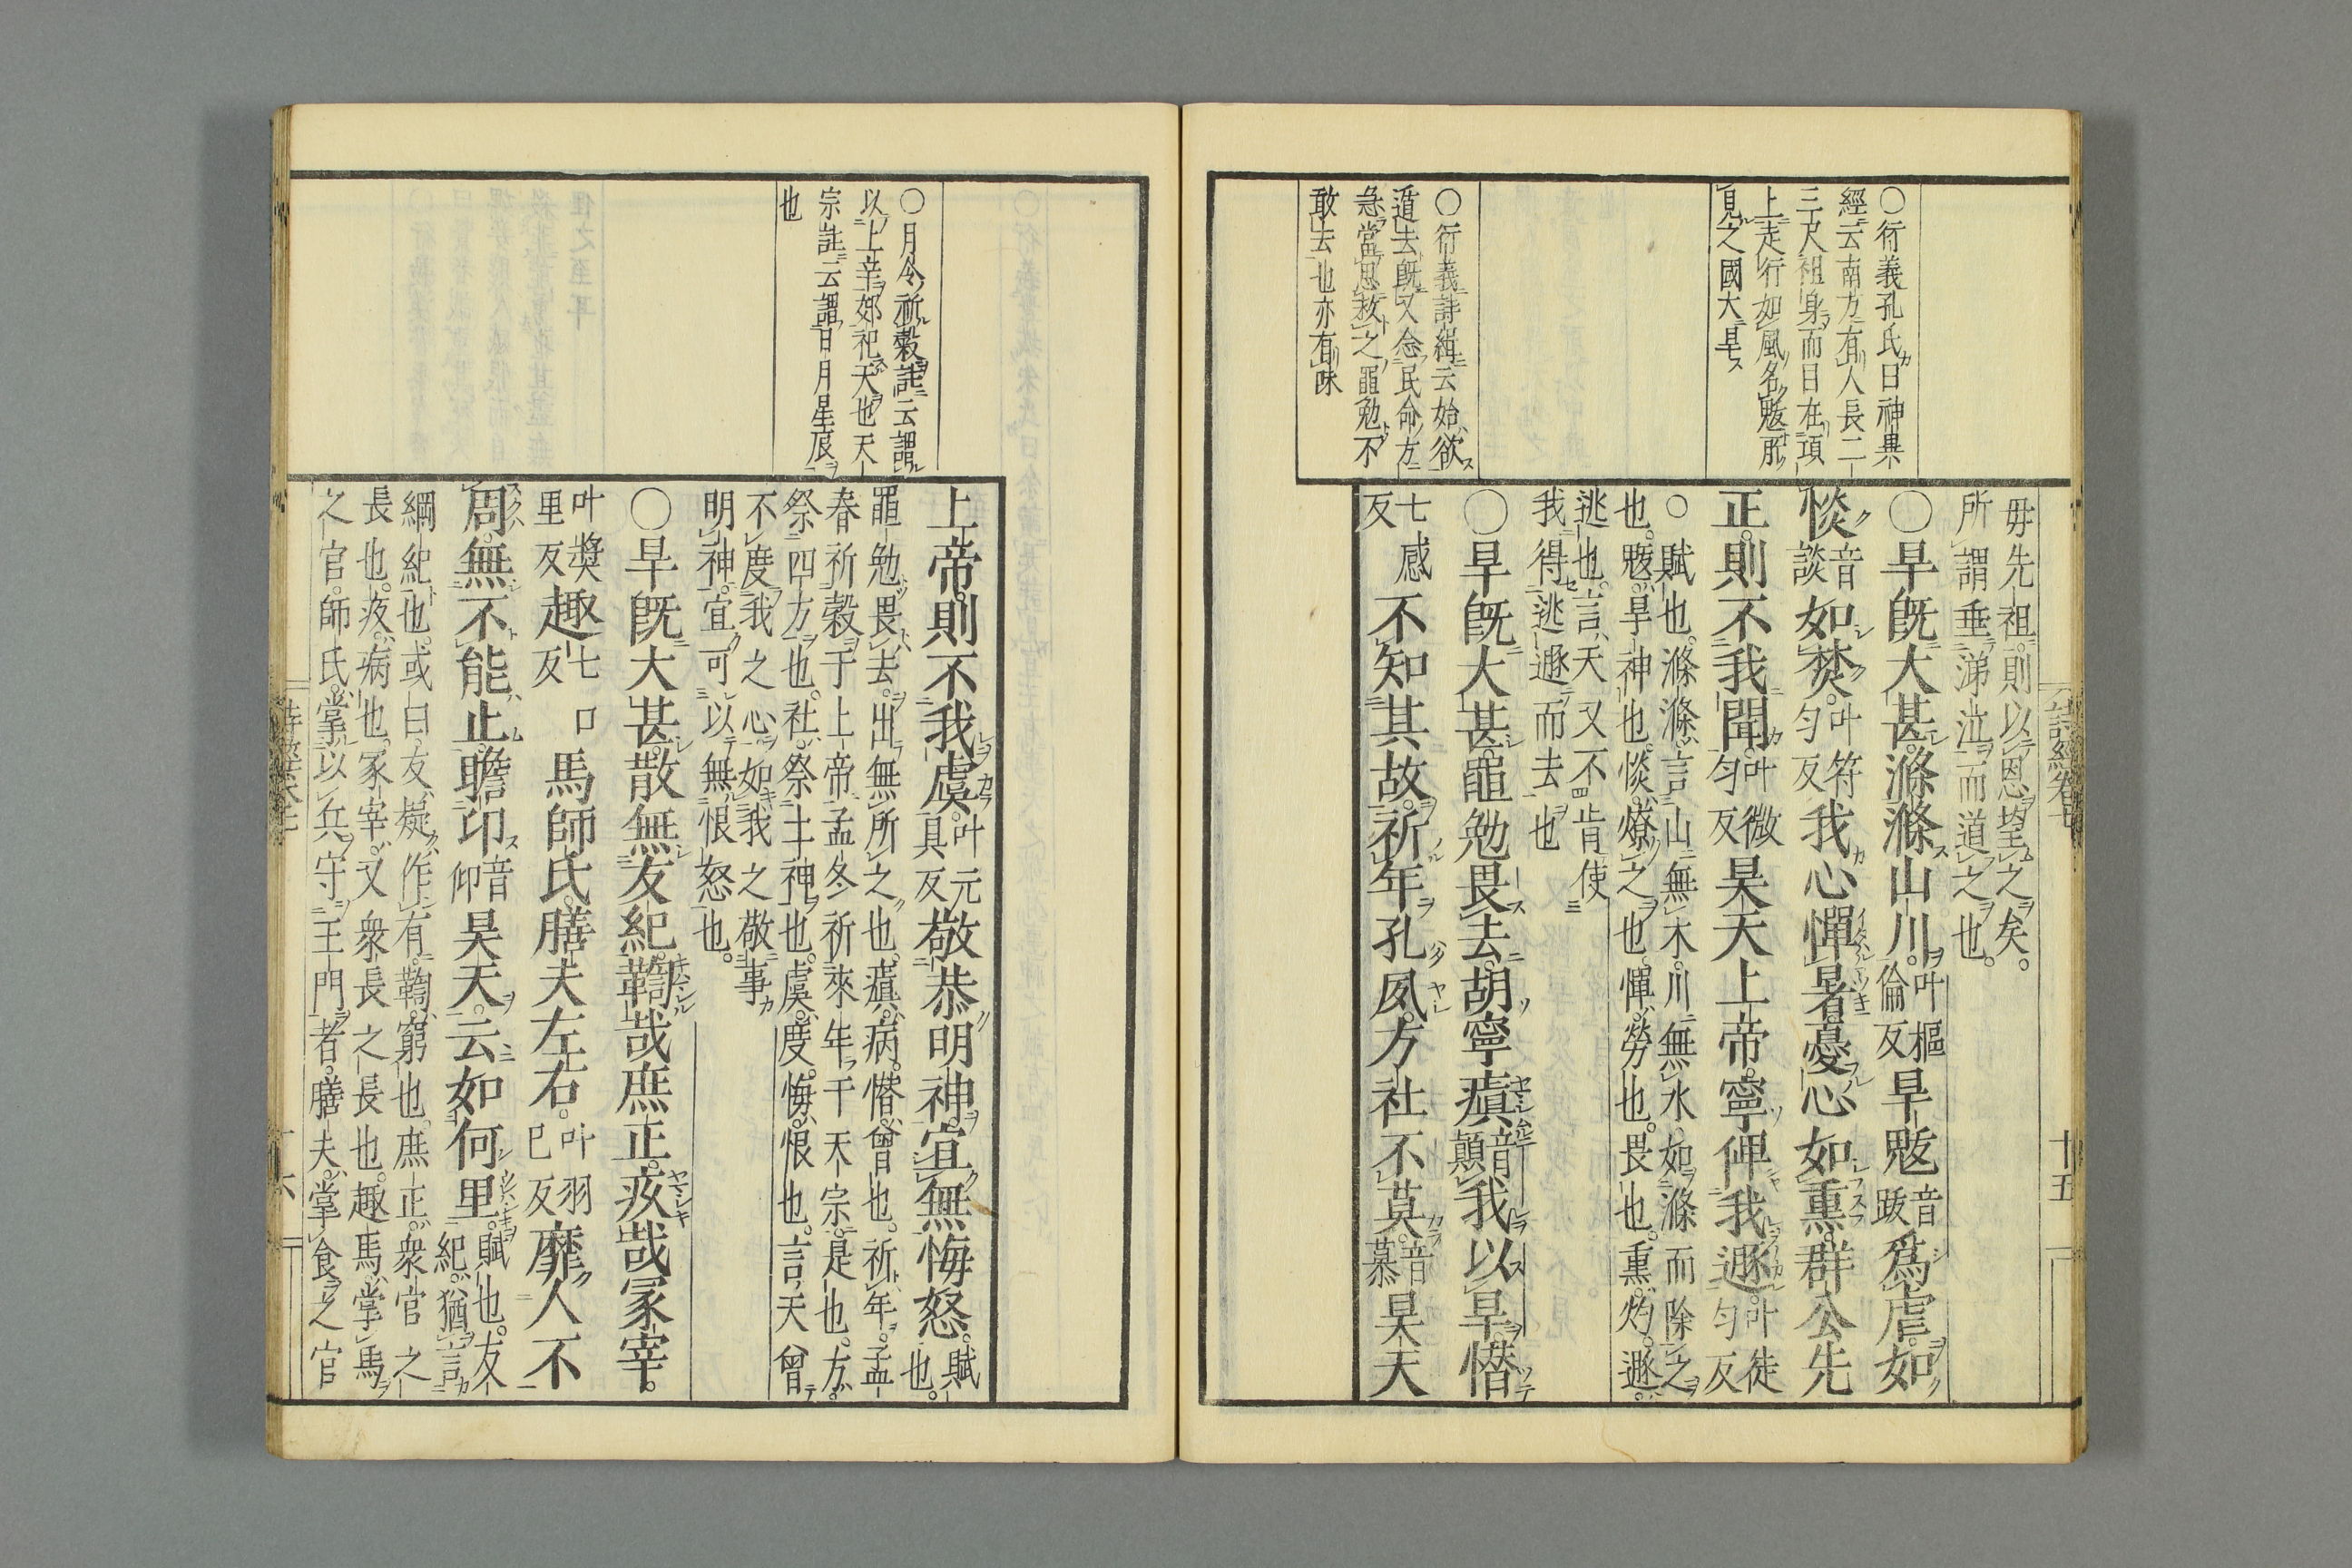 〇衍義孔氏曰神異
經云南方有人長二
三尺袒身而目在項
上走行如風名魃所
見之國大旱
〇衍義詩緝云始欲
遁去既又念民命方
急當思救之黽勉不
敢去也亦有味
毋先祖。則以恩望之矣。
所謂垂涕泣而道之也。
〇旱既大甚。滌滌山川。叶樞倫反旱魃音跋爲虐。如
惔音談如焚。叶符勻反我心憚暑。憂心如熏。群公先
正。則不我聞。叶微勻反昊天上帝。寧俾我遯。叶徒勻反
〇賦也。滌滌、言山無木。川無水。如滌而除之
也。魃、旱神也。惔、燎之也。憚、勞也。畏也。熏、灼。遯、
逃也。言天又不肯使
我得逃遯而去也
〇旱既大甚。黽勉畏去。胡寧瘨音顛我以旱。憯
七感反不知其故。祈年孔夙。方社不莫。音慕昊天
詩經卷七
十五
〇月令祈穀註云謂
以上辛郊祀天也天
宗註云謂日月星辰
也
上帝。則不我虞。叶元具反敬恭明神。宜無悔怒。賦也。
黽勉畏去。出無所之也。瘨、病。憯、曾也。祈年。孟
春祈穀于上帝、孟冬祈來年于天宗是也。方、
祭四方也。社、祭土神也。虞、度。悔、恨也。言天曾
不度我之心。如我之敬事
明神。宜可以無恨怒也。
〇旱既大甚。散無友紀。鞫哉庶正。疚哉冢宰。
叶奬里反趣七口反馬師氏。膳夫左右。叶羽已反靡人不
周。無不能止。瞻卬音仰昊天。云如何里。賦也。友紀、猶言
綱紀也。或曰友、疑作有。鞫、窮也。庶正、衆官之
長也。疚、病也。冢宰、又衆長之長也。趣馬、掌馬
之官。師氏、掌以兵守王門者。膳夫、掌食之官